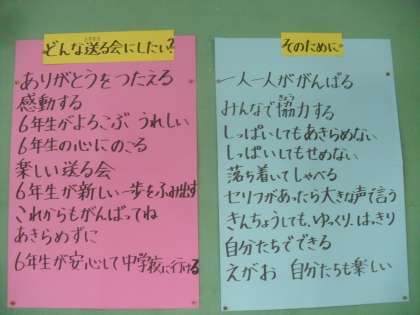 どんな送る会にしたい?
ありがとうをつたえる
感動する
6年生がよろこぶ うれしい
6年生の心にのこる
楽しい送る会
6年生が新しい一歩をふみ出す
これからもがんばってね
あきらめずに
6年生が安心して中学校に行ける
そのために
一人一人ががんばる
みんなで協力する
しっぱいしてもあきらめない
しっぱいしてもせめない
落ち着いてしゃべる
セリフがあったら大きな声で言う
きんちょうしても、ゆっくり、はっきり
自分たちでできる
えがお 自分たちも楽しい